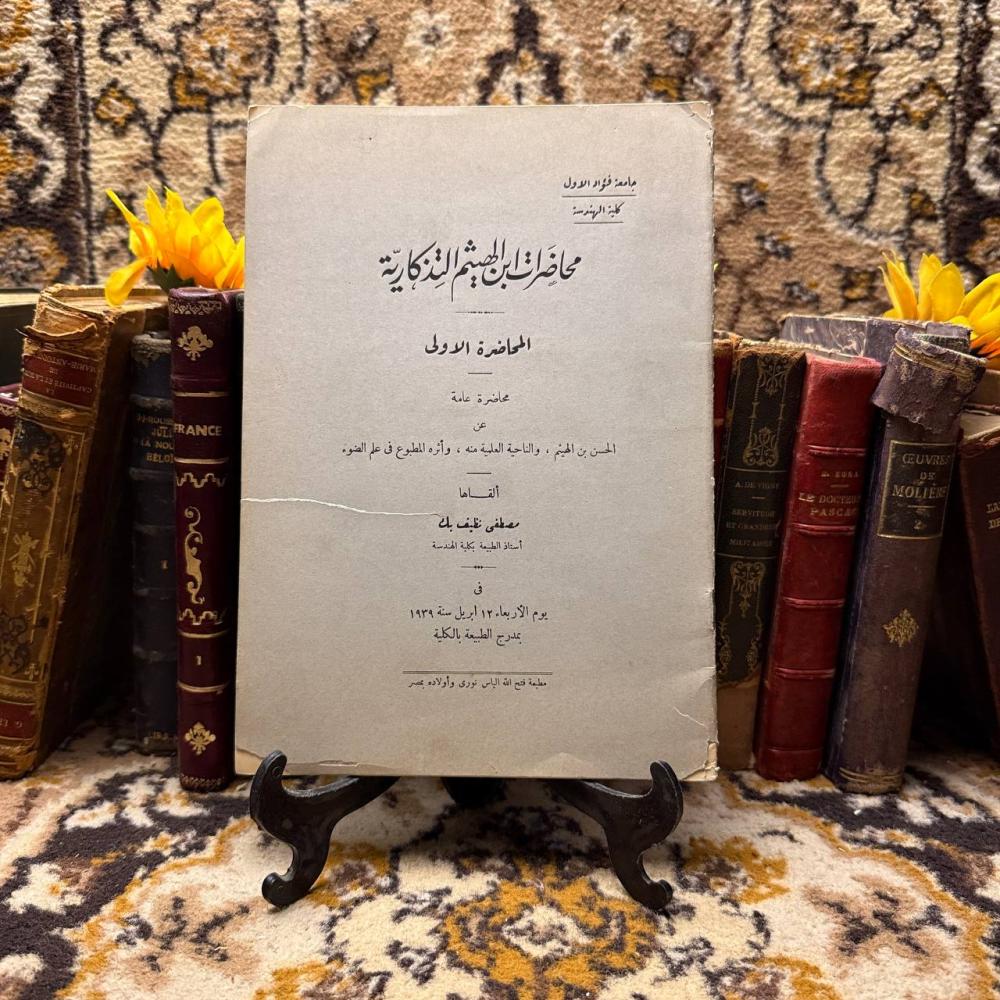 جامعة فؤاد الاول
كلية الهندسة
محاضرات ابن الهيثم التذكارية
المحاضرة الاولى
محاضرة عامة
عن
الحسن بن الهيثم ، والناحية العلمية منه ، وأثره المطبوع فى علم الضوء
ألقاها
مصطفى نظيف بك
أستاذ الطبيعة بكلية الهندسة
فى
يوم الأربعاء ١٢ أبريل سنة ١٩٣٩
بمدرج الطبيعة بالكلية
مطبعة فتح الله الياس نورى وأولاده بمصر
FRANCE
1
A. DE VIGNY
SERVITUDE
ET GRANDEUR
MILITAIRES
LE DOCTEUR
PASCAL
ŒUVRES
DE
MOLIÈRE
2